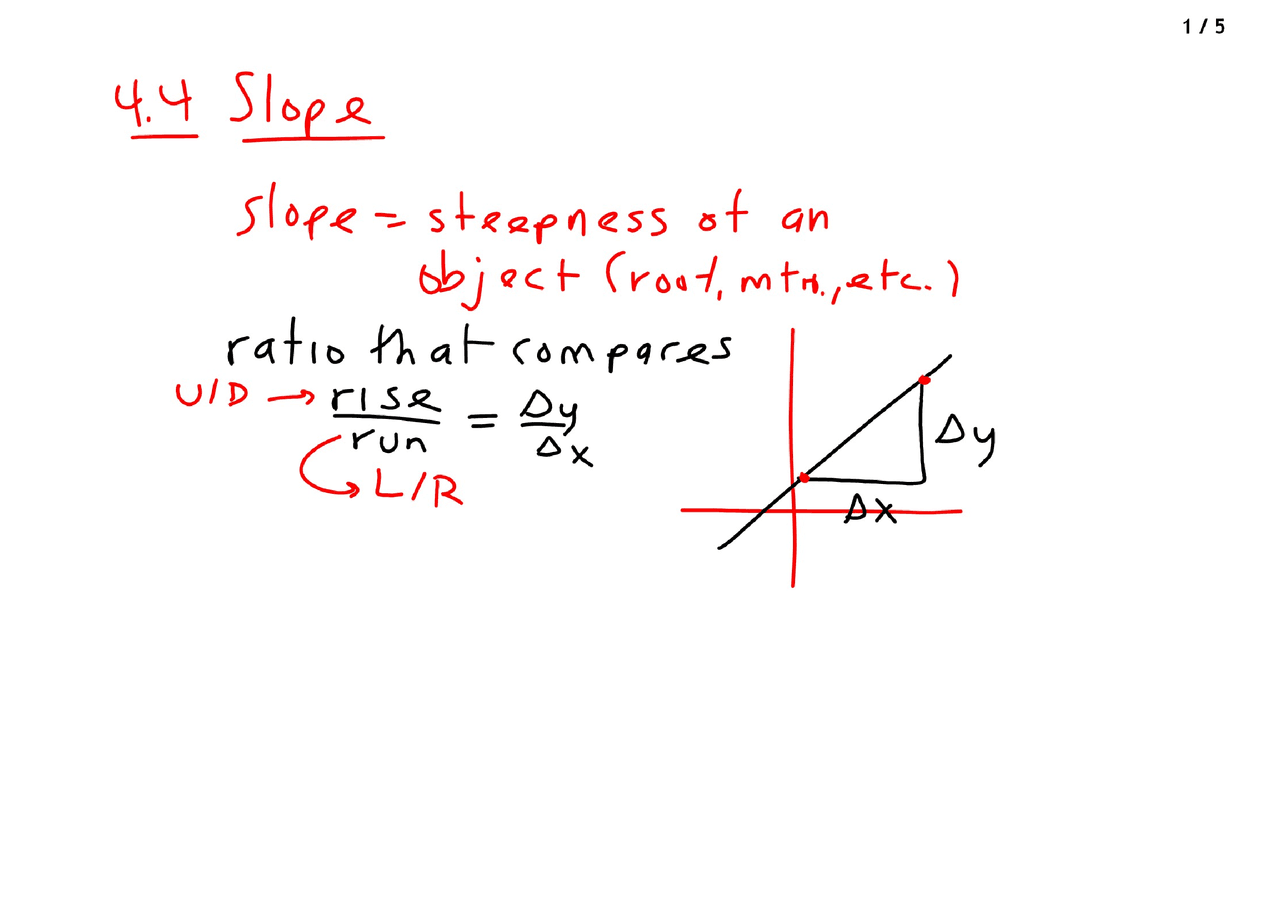 1 / 5
4.4 Slope
slope = steepness of an
object (roof, mtn., etc.)
ratio that compares
U/D → rise/run = Δy/Δx
L/R
Δy
Δx